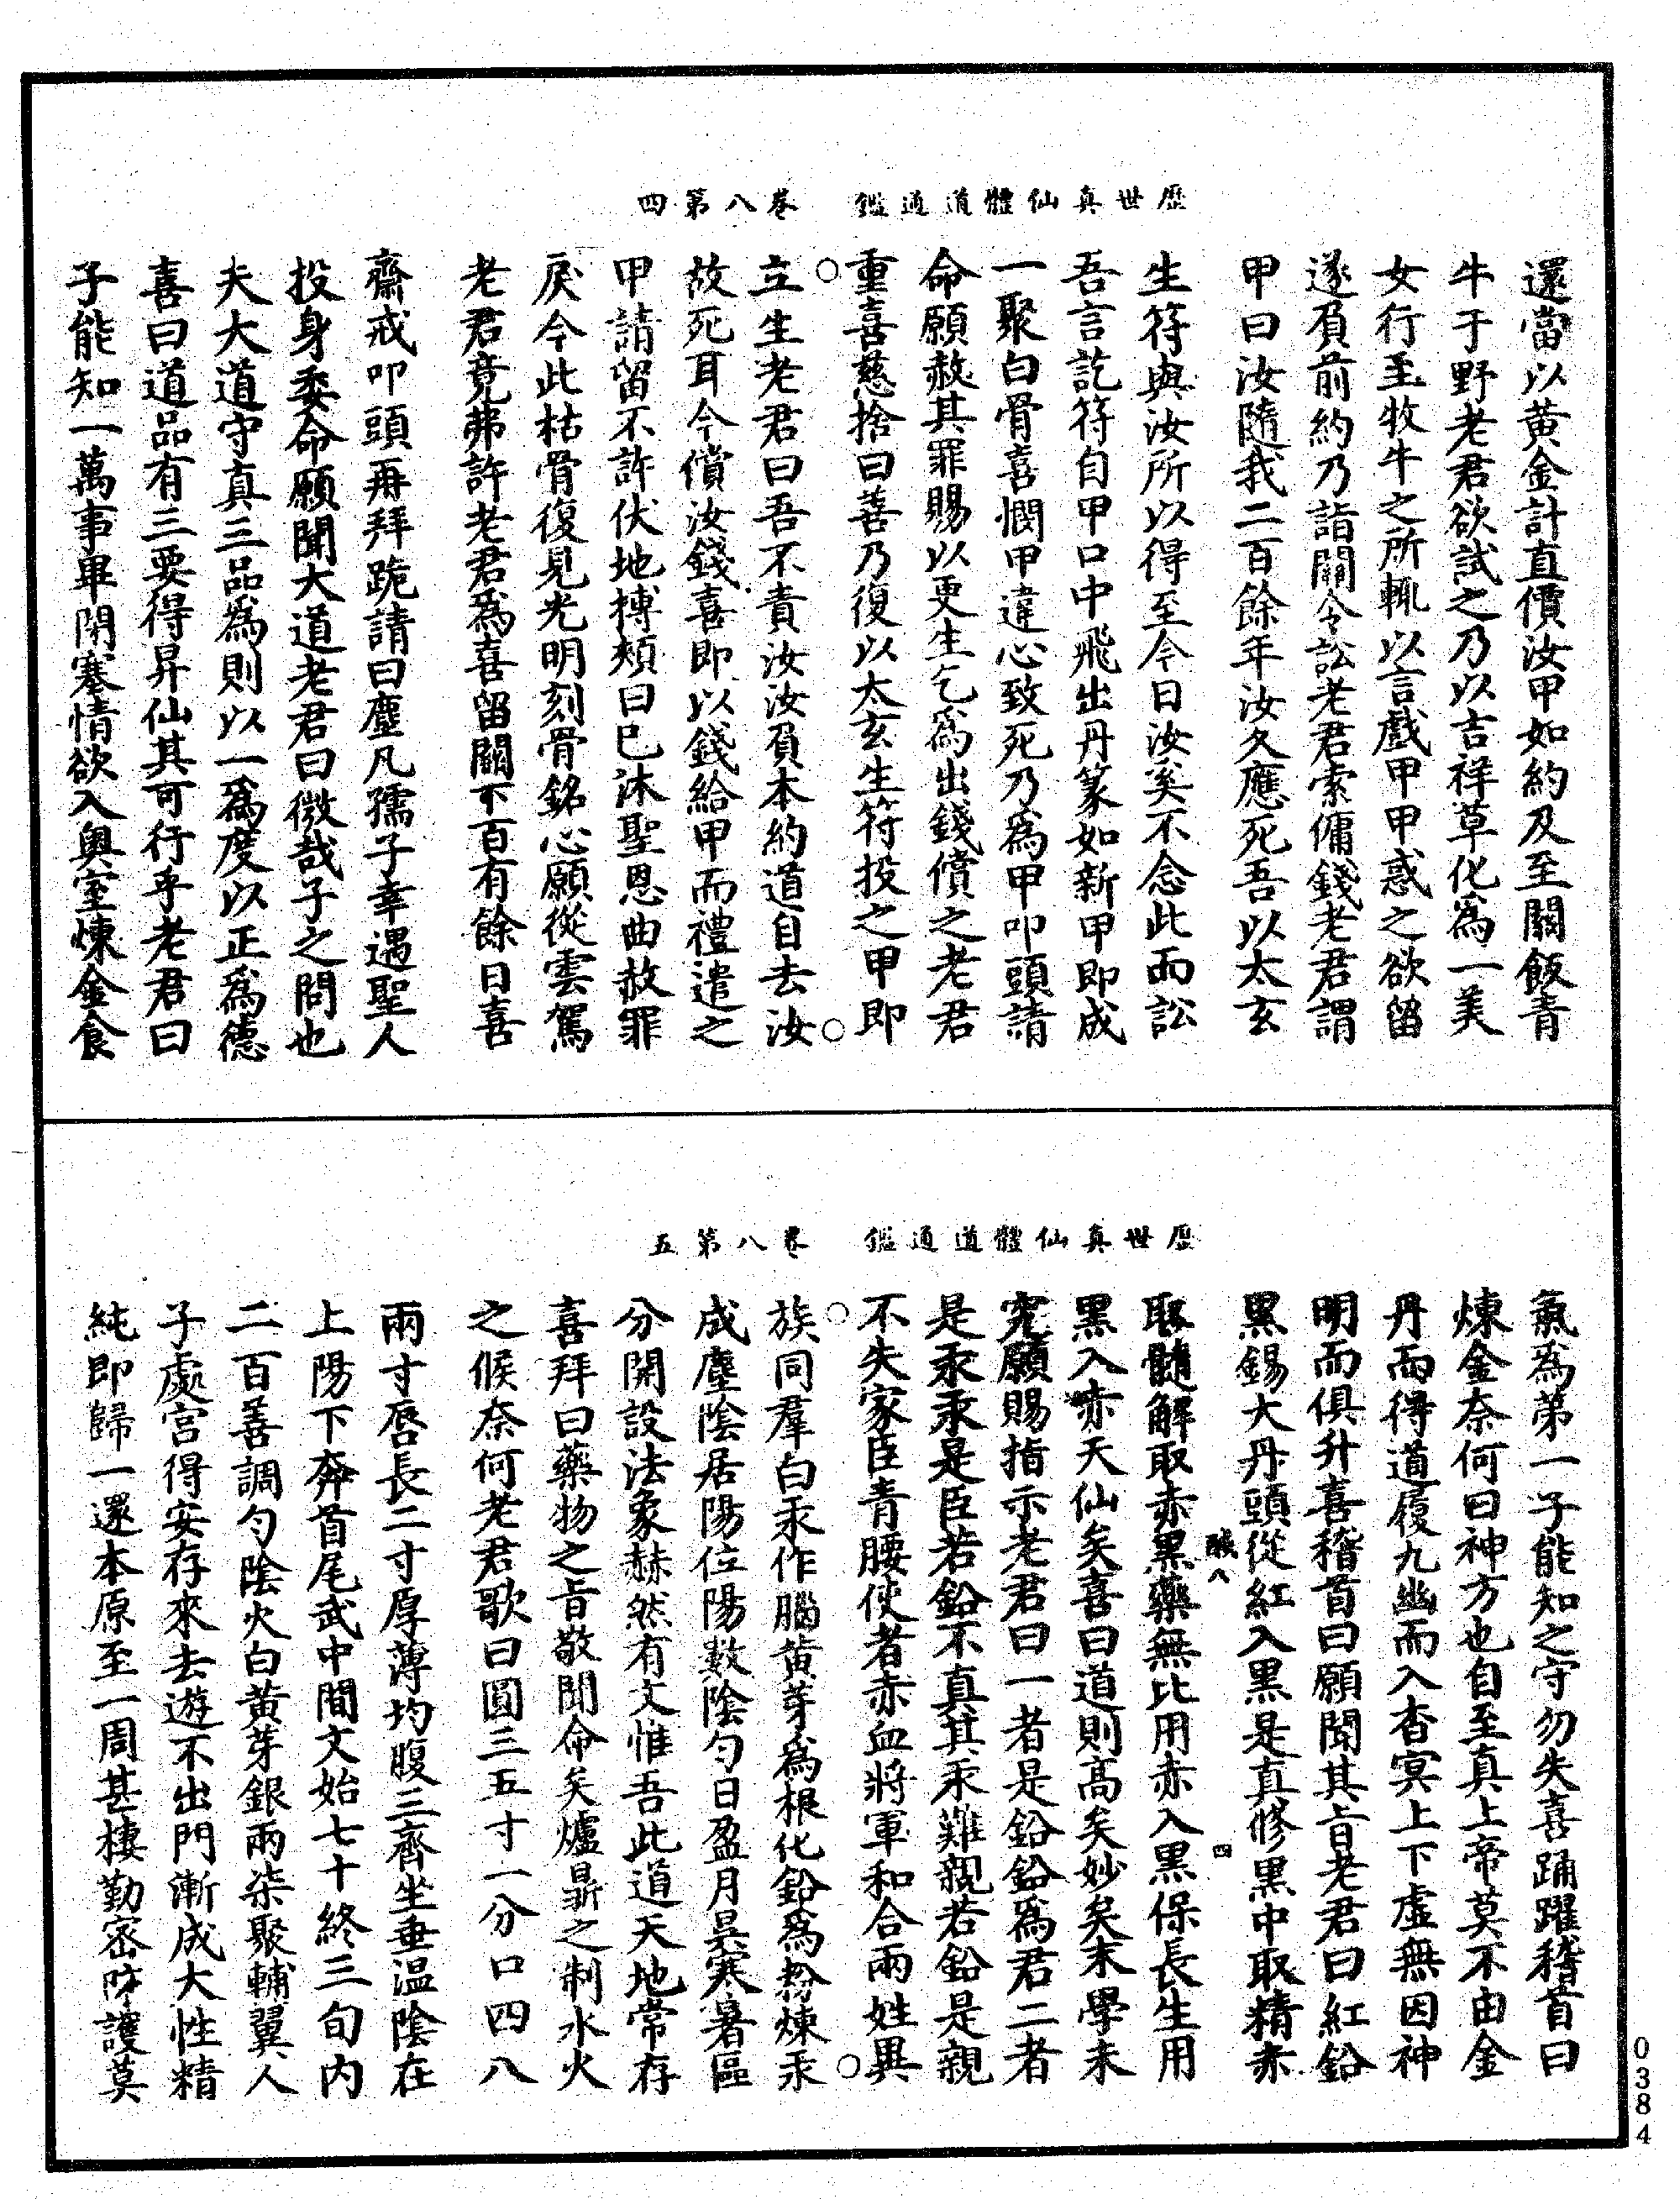 歷世真仙體道通鑑　卷八第四
還當以黃金計直價汝甲如約及至關飯青
牛于野老君欲試之乃以吉祥草化為一美
女行至牧牛之所輒以言戲甲甲惑之欲留
遂負前約乃詣關令訟老君索傭錢老君謂
甲曰汝隨我二百餘年汝久應死吾以太玄
生符與汝所以得至今日汝奚不念此而訟
吾言訖符自甲口中飛出丹篆如新甲即成
一聚白骨喜憫甲違心致死乃為甲叩頭請
命願赦其罪賜以更生乞為出錢償之老君
重喜慈捨曰善乃復以太玄生符投之甲即
立生老君曰吾不責汝汝負本約道自去汝
故死耳今償汝錢喜即以錢給甲而禮遣之
甲請留不許伏地搏頰曰已沐聖恩曲赦罪
戾今此枯骨復見光明刻骨銘心願從雲駕
老君竟弗許老君為喜留關下百有餘日喜
齋戒叩頭再拜跪請曰塵凡孺子幸遇聖人
投身委命願聞大道老君曰微哉子之問也
夫大道守真三品為則以一為度以正為德
喜曰道品有三要得昇仙其可行乎老君曰
子能知一萬事畢閉塞情欲入奧室煉金食
歷世真仙體道通鑑　卷八第五
氣為第一子能知之守勿失喜踊躍稽首曰
煉金奈何曰神方也自至真上帝莫不由金
丹而得道履九幽而入杳冥上下虛無因神
明而俱升喜稽首曰願聞其旨老君曰紅鉛
黑錫大丹頭從紅入黑是真修黑中取精赤
醎八　四
取髓解取赤黑藥無比用赤入黑保長生用
黑入赤天仙矣喜曰道則高矣妙矣末學未
究願賜指示老君曰一者是鉛鉛為君二者
是汞汞是臣若鉛不真其汞難親若鉛是親
不失家臣青腰使者赤血將軍和合兩姓異
族同羣白汞作腦黃芽為根化鉛為粉煉汞
成塵陰居陽位陽數陰勻日盈月昃寒暑區
分開設法象赫然有文惟吾此道天地常存
喜拜曰藥物之旨敬聞命矣爐鼎之制水火
之候奈何老君歌曰圓三五寸一分口四八
兩寸唇長二寸厚薄均腹三齊坐垂温陰在
上陽下奔首尾武中間文始七十終三旬内
二百善調勻陰火白黃芽銀兩柒聚輔翼人
子處宮得安存來去遊不出門漸成大性精
純即歸一還本原至一周甚棲勤密防護莫
0384